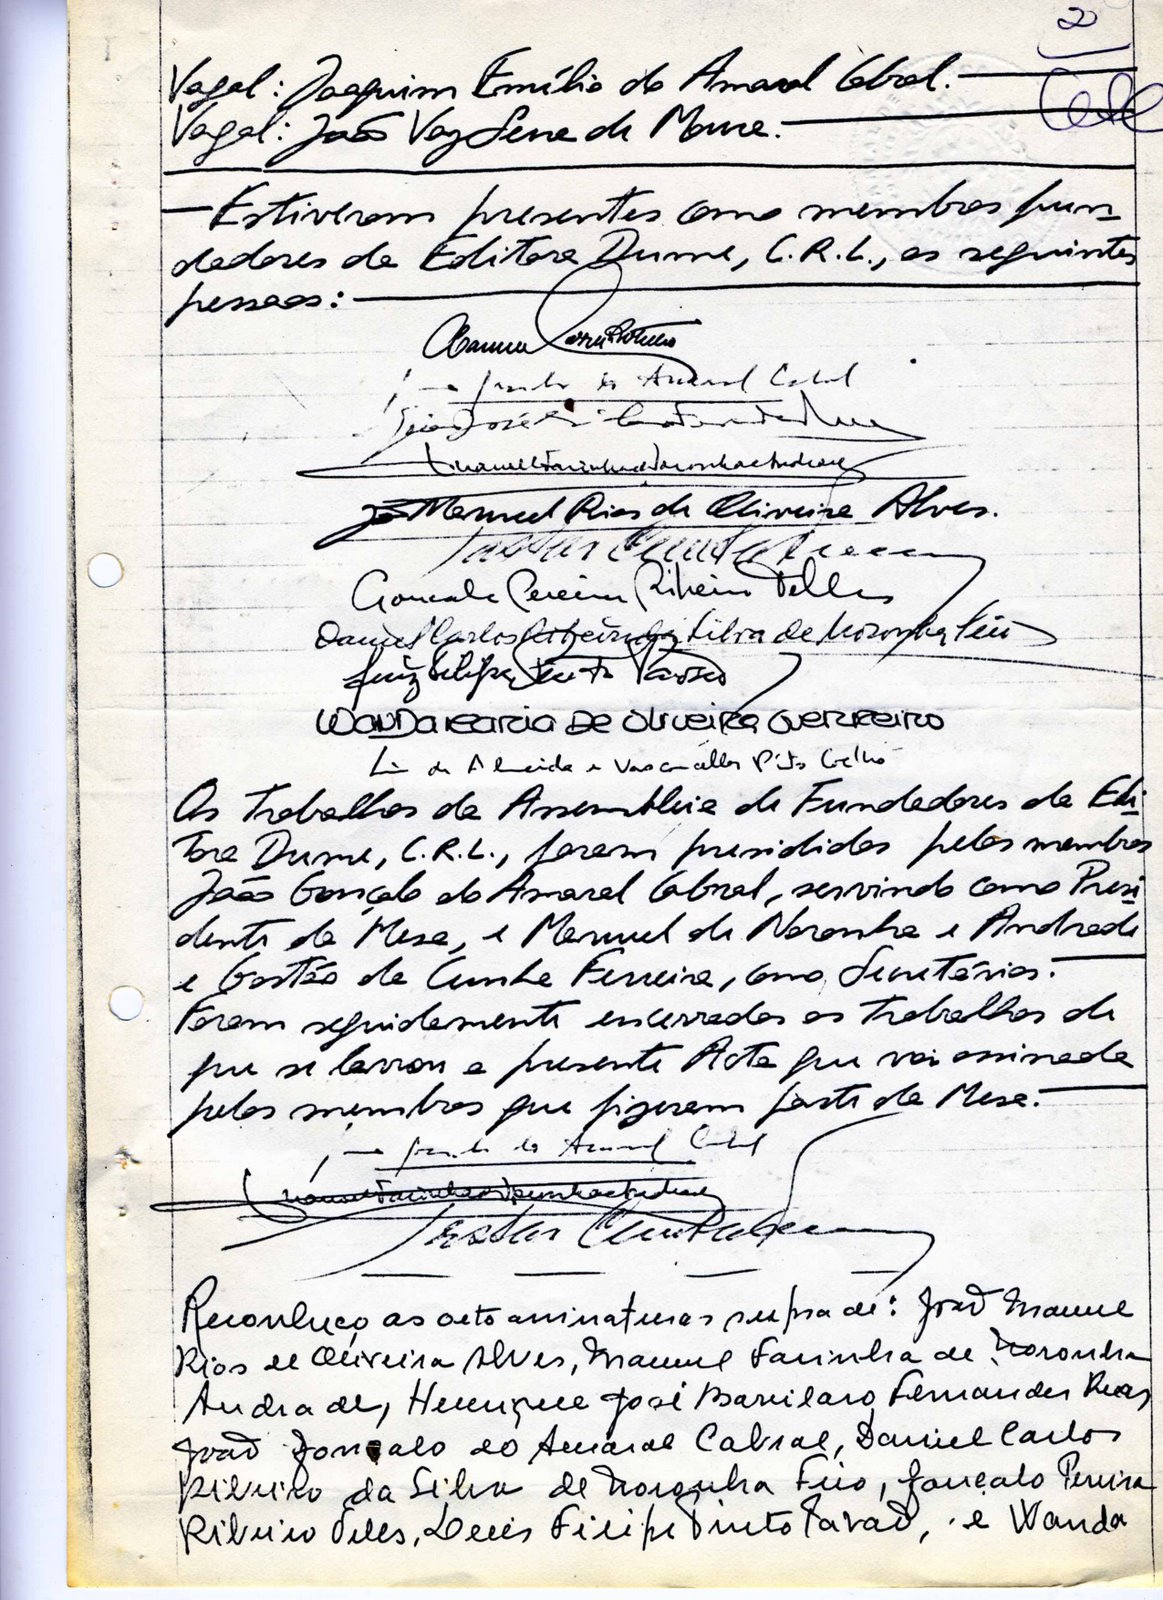 2
Vogal: Joaquim Emílio do Amaral Cabral.
Vogal: João Vaz Serra de Moura.
— Estiveram presentes como membros fun-
dadores da Editora Dume, C.R.L., as seguintes
pessoas:
do Amaral Cabral
José
Manuel Farinha de Noronha e Andrade
João Manuel Rios de Oliveira Alves.
Gastão Cunha Ferreira
Gonçalo Pereira Ribeiro Telles
Daniel Carlos Ribeiro da Silva de Noronha Feio
Luiz Filipe Pinto
WANDA GARCIA DE OLIVEIRA GUERREIRO
de Almeida e Vasconcellos Pinto Coelho
Os trabalhos da Assembleia de Fundadores da Edi-
tora Dume, C.R.L., foram presididos pelos membros
João Gonçalo do Amaral Cabral, servindo como Presi-
dente da Mesa, e Manuel de Noronha e Andrade
e Gastão da Cunha Ferreira, como Secretários.
Foram seguidamente encerrados os trabalhos de
que se lavrou a presente Acta que vai assinada
pelos membros que fizeram parte da Mesa.
do Amaral Cabral
Manuel Farinha de Noronha e Andrade
Gastão Cunha Ferreira
Reconheço as oito assinaturas supra de: João Manuel
Rios de Oliveira Alves, Manuel Farinha de Noronha
Andrade, Henrique José Barrilaro Fernandes Ruas,
João Gonçalo do Amaral Cabral, Daniel Carlos
Ribeiro da Silva de Noronha Feio, Gonçalo Pereira
Ribeiro Teles, Luís Filipe Pinto, e Wanda